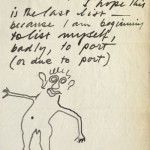 I hope this
is the last list —
because I am beginning
to list myself,
badly, to port
(or due to port)